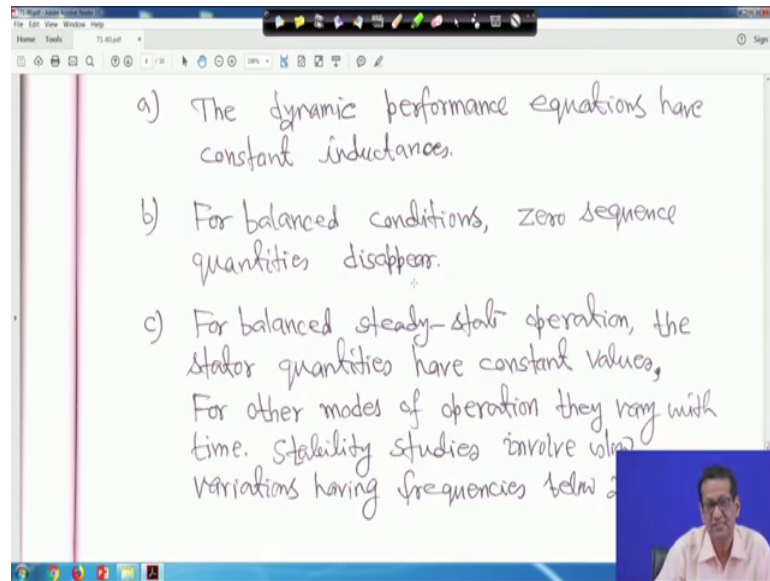 File Edit View Window Help
Home Tools 71-80.pdf × Sign
a) The dynamic performance equations have
constant inductances.
b) For balanced conditions, zero sequence
quantities disappear.
c) For balanced steady-state operation, the
stator quantities have constant values,
For other modes of operation they vary with
time. Stability studies involve slow
variations having frequencies below 2